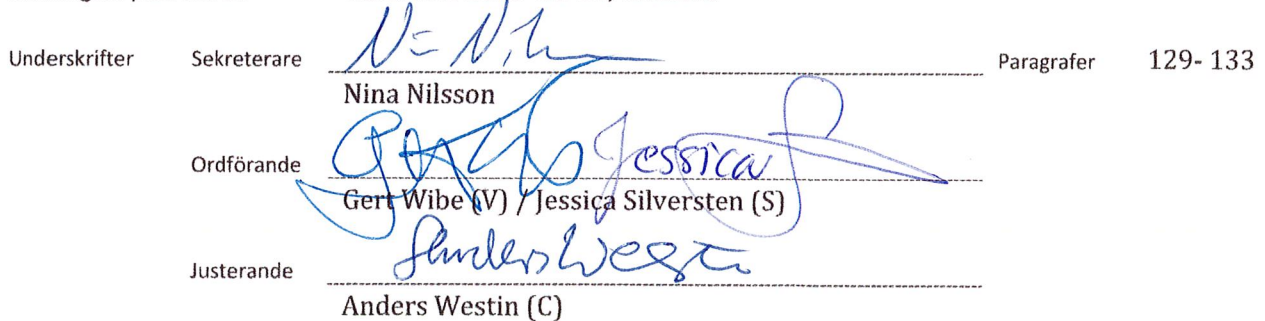 Underskrifter Sekreterare Paragrafer 129- 133
Nina Nilsson
Ordförande Jessica
Gert Wibe (V) / Jessica Silversten (S)
Justerande Anders Westin
Anders Westin (C)